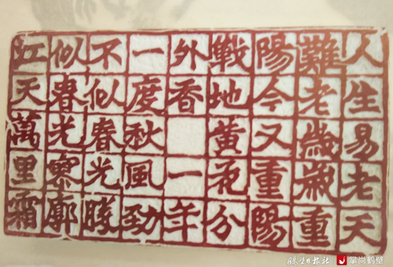 人生易老天
難老歲歲重
陽今又重陽
戰地黃花分
外香一年
一度秋風勁
不似春光勝
似春光寥廓
江天萬里霜
掌尚鹤壁